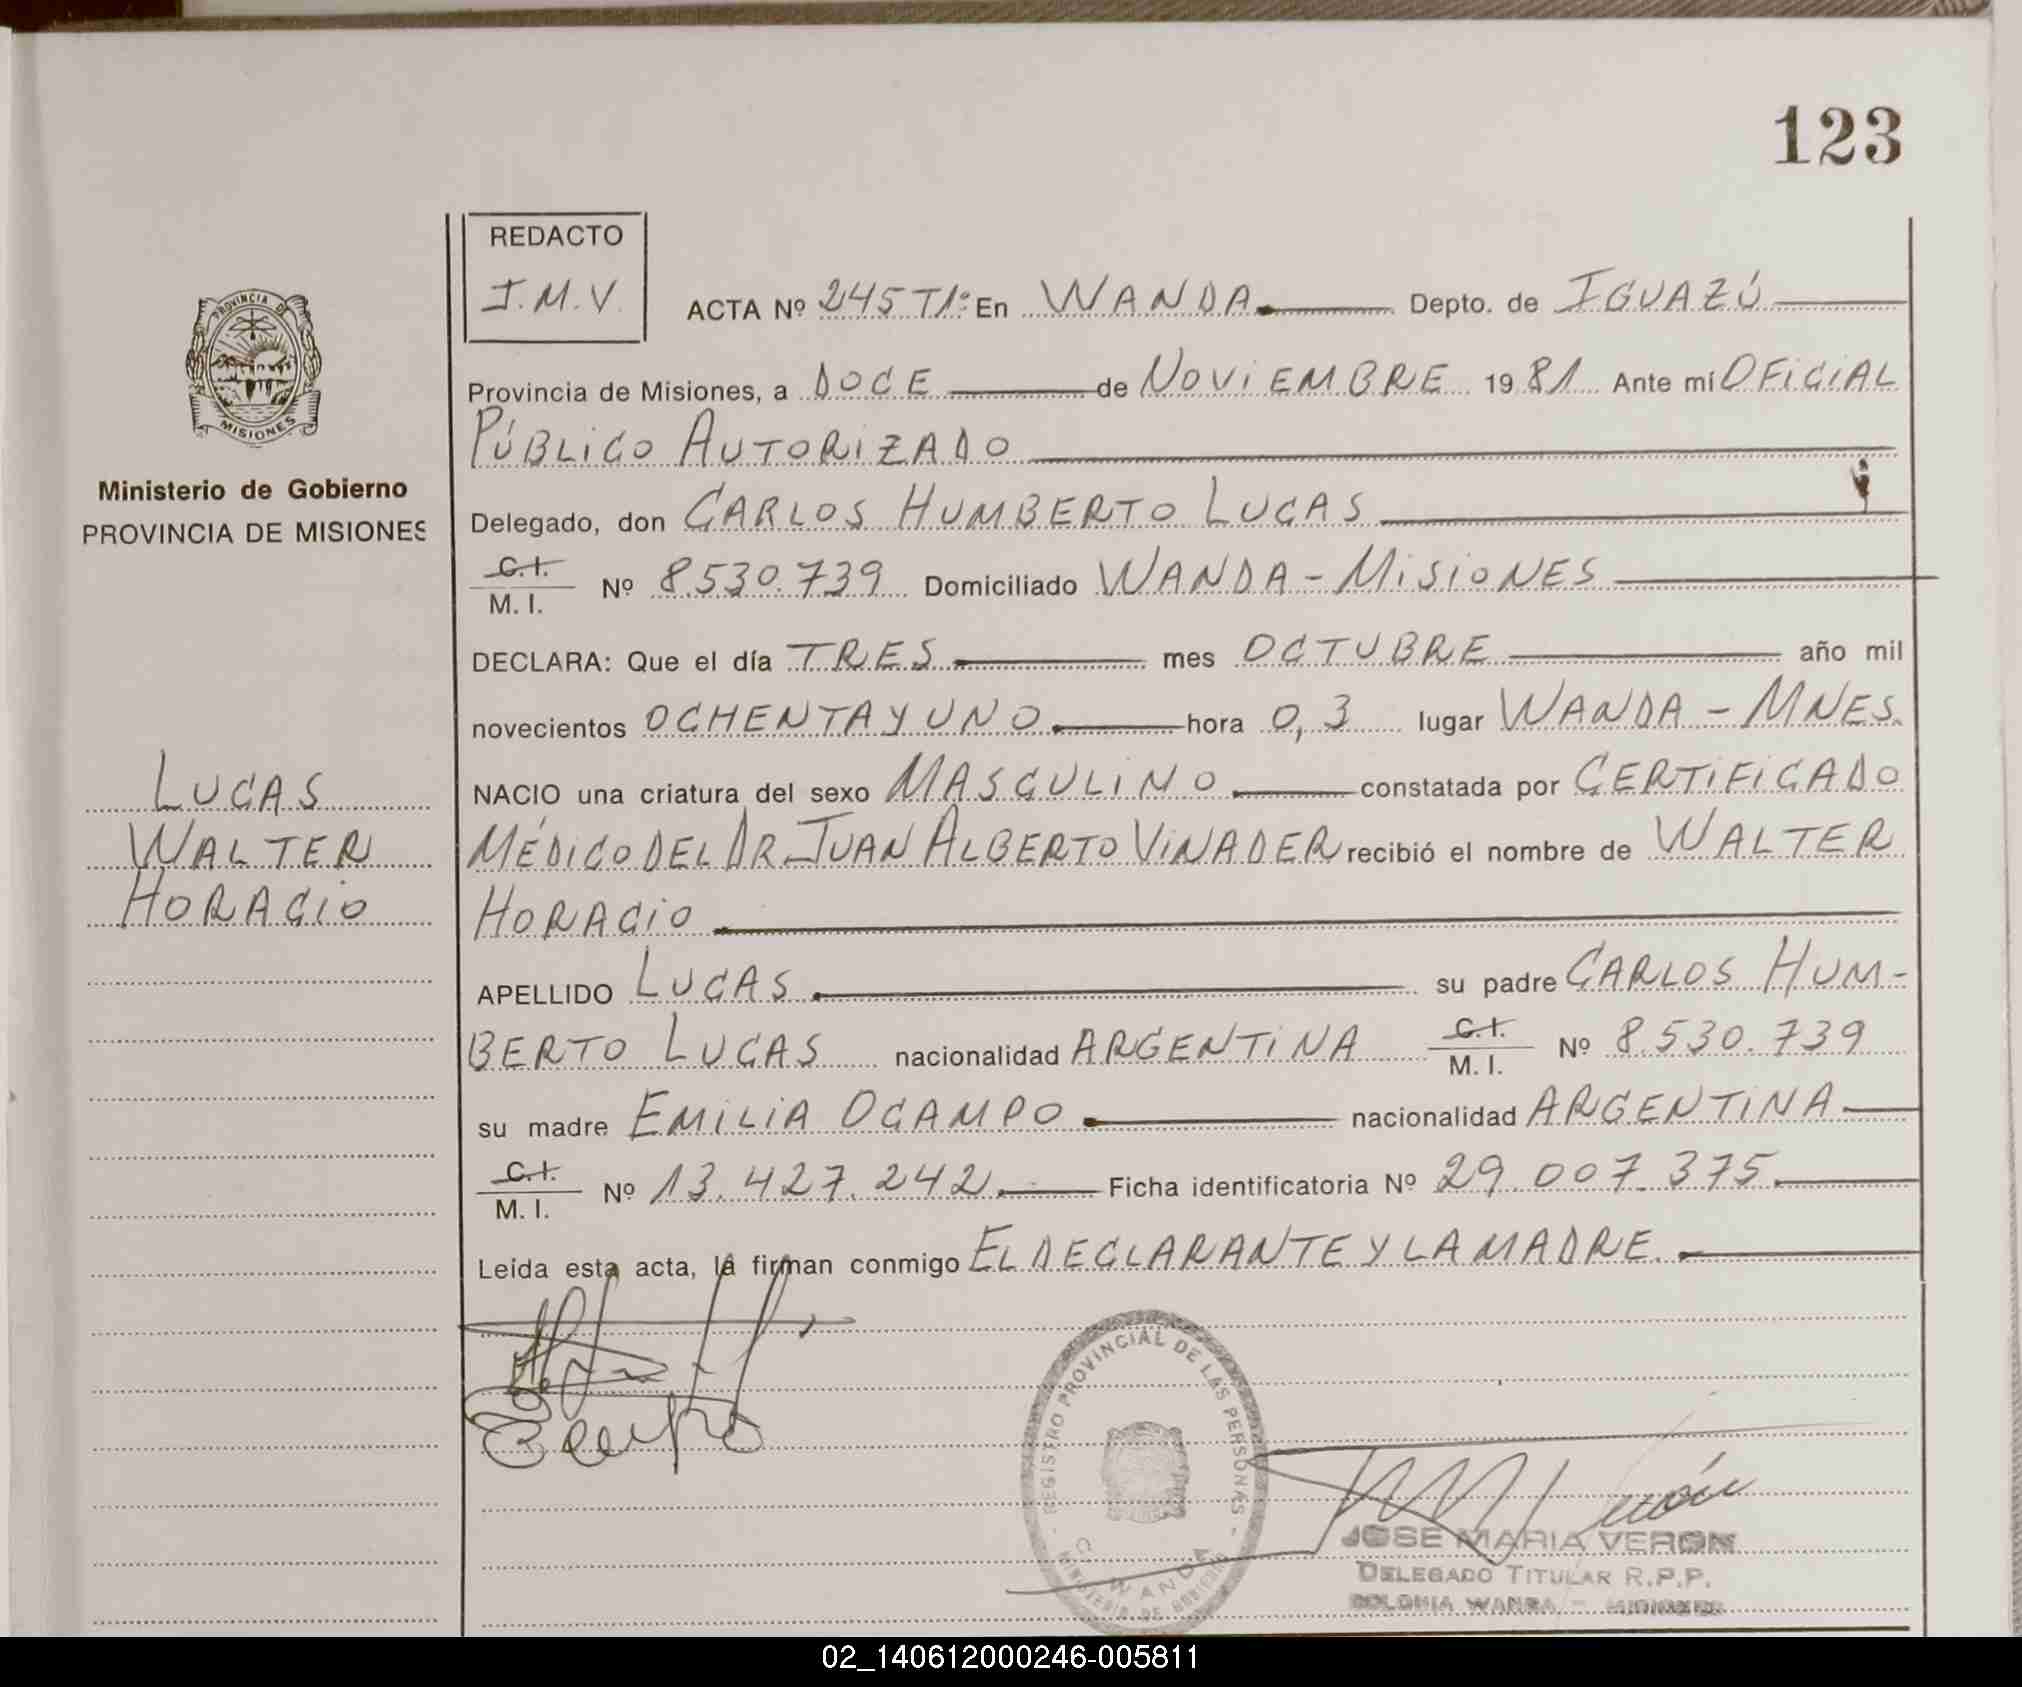 123
REDACTO
J.M.V.
ACTA Nº 245 T1º En WANDA Depto. de IGUAZÚ
Provincia de Misiones, a DOCE de NOVIEMBRE 1981 Ante mí OFICIAL
PÚBLICO AUTORIZADO
Delegado, don CARLOS HUMBERTO LUCAS
C.I.
M.I. Nº 8.530.739 Domiciliado WANDA - MISIONES
DECLARA: Que el día TRES mes OCTUBRE año mil
novecientos OCHENTA Y UNO hora 0,3 lugar WANDA - MNES.
NACIO una criatura del sexo MASCULINO constatada por CERTIFICADO
MÉDICO DEL DR. JUAN ALBERTO VINADER recibió el nombre de WALTER
HORACIO
APELLIDO LUCAS su padre CARLOS HUM-
BERTO LUCAS nacionalidad ARGENTINA C.I. M.I. Nº 8.530.739
su madre EMILIA OCAMPO nacionalidad ARGENTINA
C.I.
M.I. Nº 13.427.242 Ficha identificatoria Nº 29.007.375
Leída esta acta, la firman conmigo EL DECLARANTE Y LA MADRE.
PROVINCIA DE
MISIONES
Ministerio de Gobierno
PROVINCIA DE MISIONES
LUCAS
WALTER
HORACIO
REGISTRO PROVINCIAL DE LAS PERSONAS
WANDA
MINISTERIO DE GOBIERNO
JOSE MARIA VERON
DELEGADO TITULAR R.P.P.
COLONIA WANDA - MISIONES
02_140612000246-005811